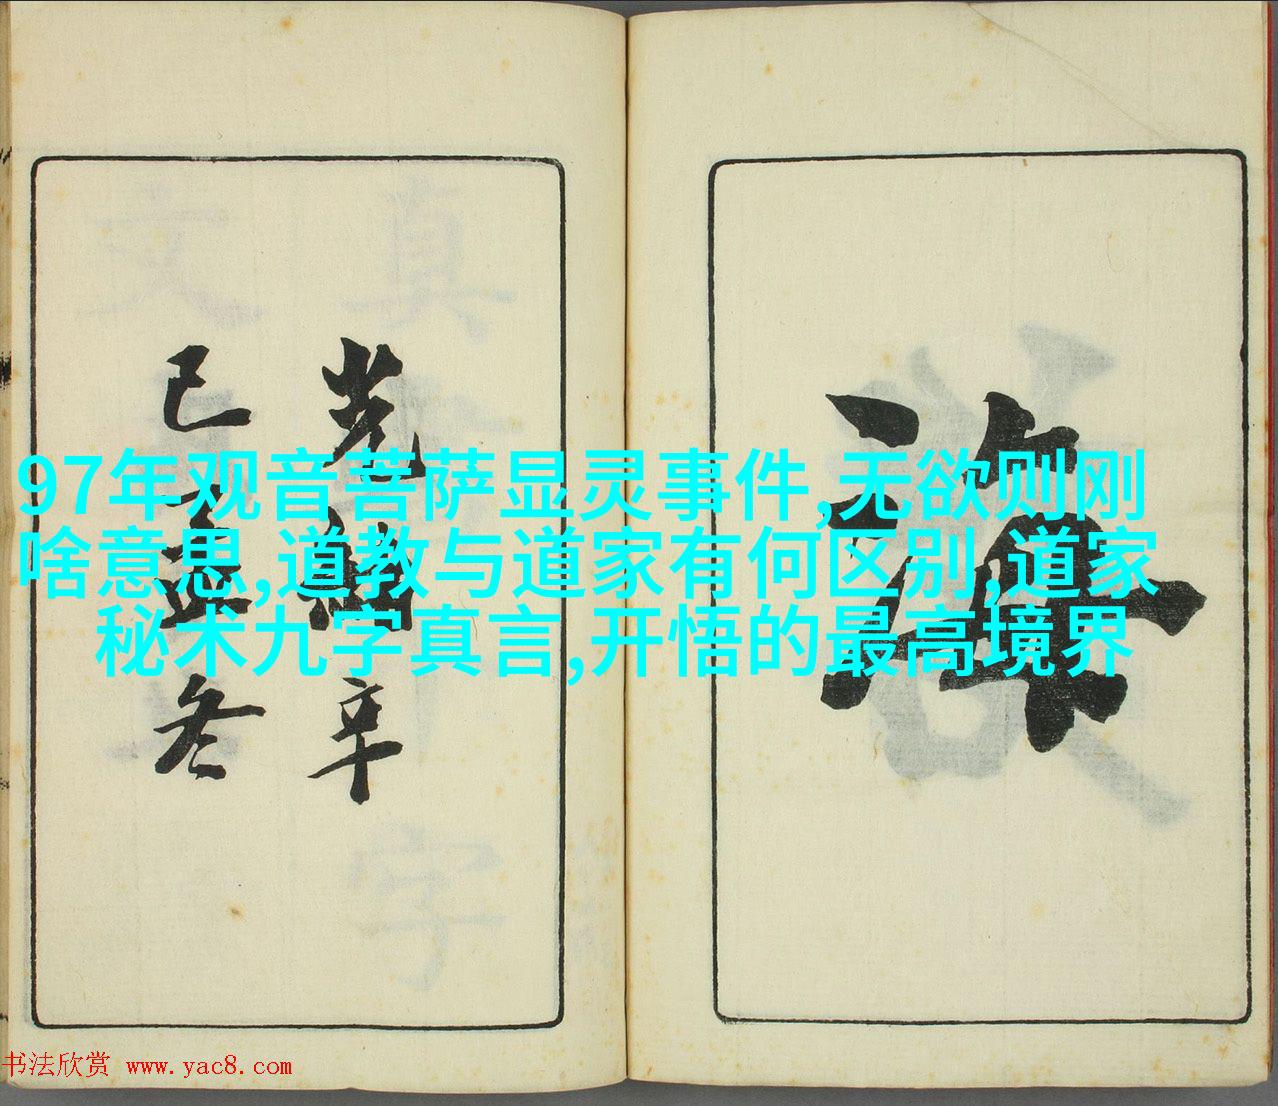 97年观音菩萨显灵事件,无欲则刚
啥意思,道教与道家有何区别,道家
秘术九字真言,开悟的最高境界
光緒辛
巳孟冬
书法欣赏 www.yac8.com